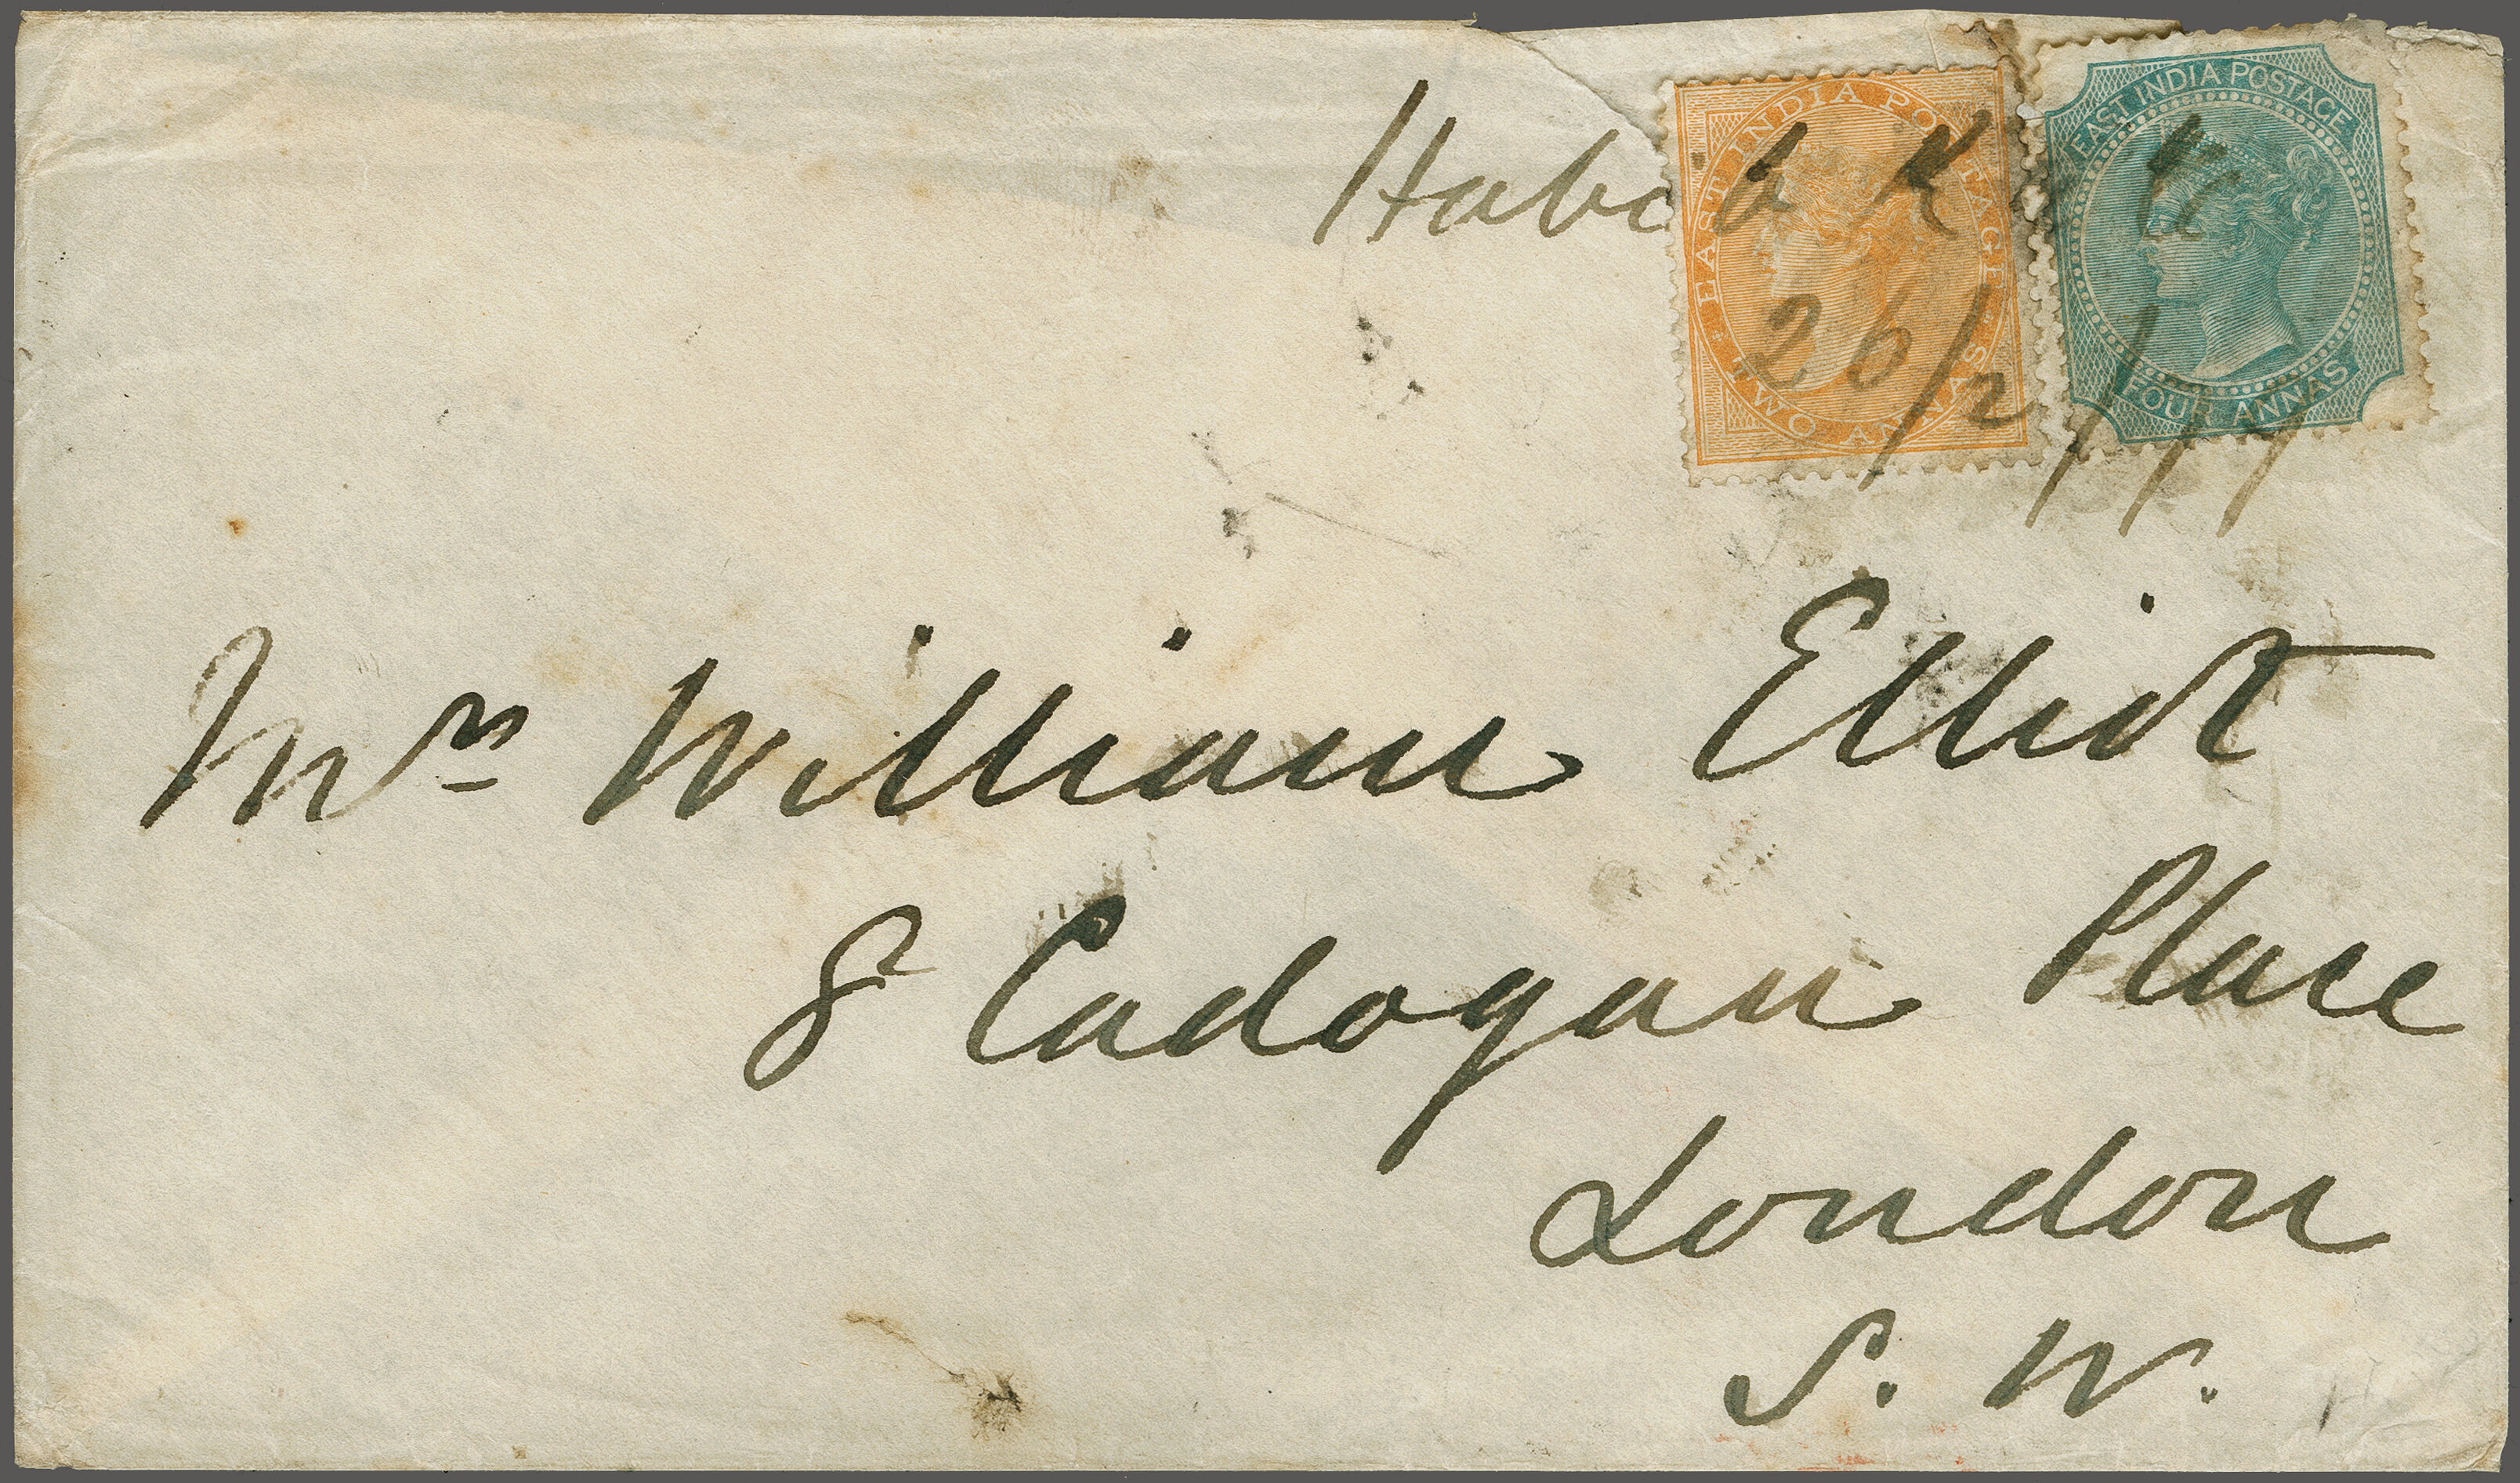 EAST INDIA POSTAGE
TWO ANNAS
EAST INDIA POSTAGE
FOUR ANNAS
26/2/
Mrs William Elliot
8 Cadogan Place
London
S. W.